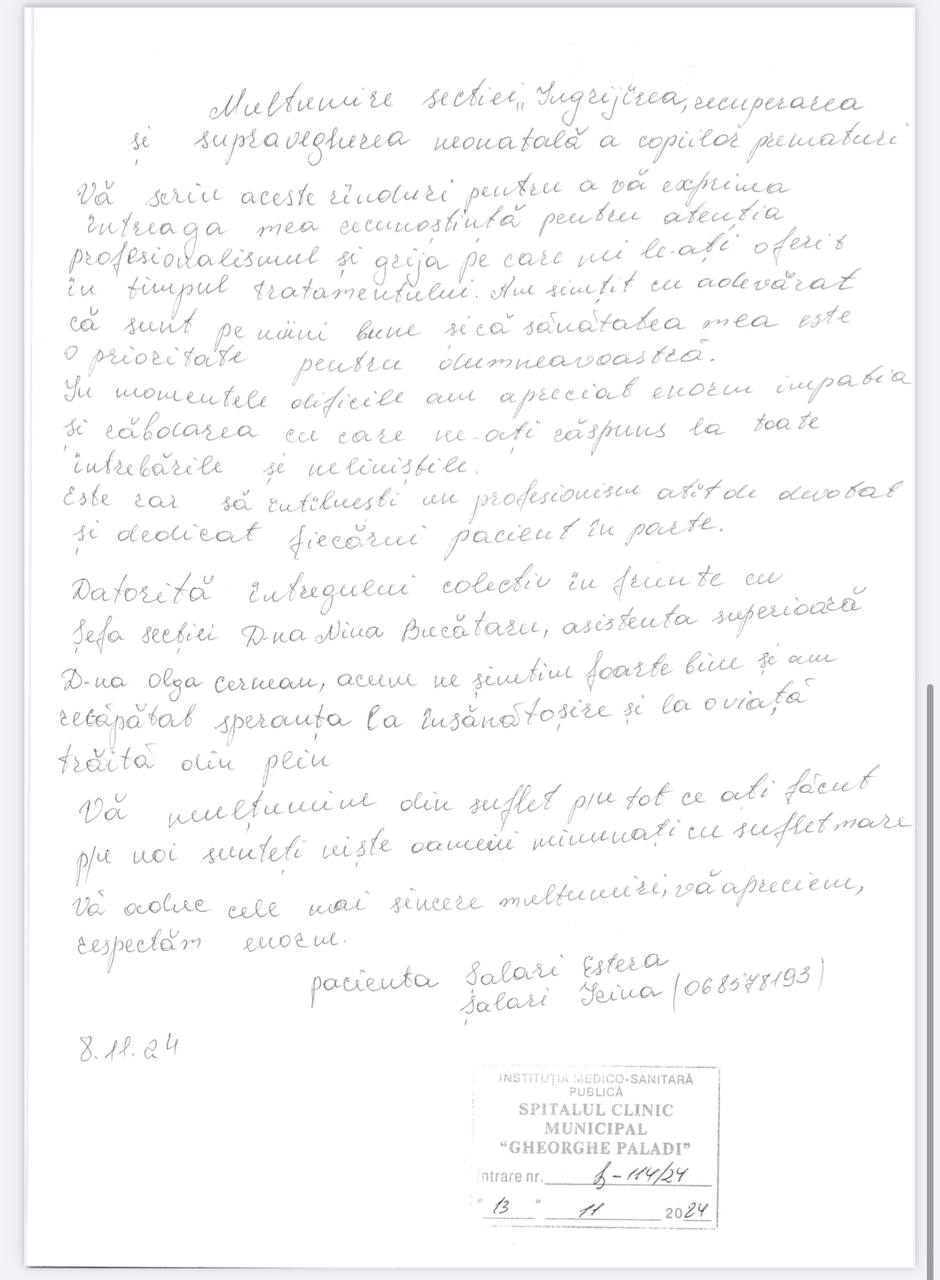 Mulțumire secției „Îngrijirea, recuperarea
și supravegherea neonatală a copiilor prematuri
Vă scriu aceste rînduri pentru a vă exprima
întreaga mea recunoștință pentru atenția
profesionalismul și grija pe care mi le-ați oferit
în timpul tratamentului. Am simțit cu adevărat
că sunt pe mîini bune si că sănătatea mea este
o prioritate pentru dumneavoastră.
In momentele dificile am apreciat enorm impatia
și răbdarea cu care ne-ați răspuns la toate
întrebările și neliniștile.
Este rar să întîlnești un profesionism atît de devotat
și dedicat fiecărui pacient în parte.
Datorită întregului colectiv în frunte cu
Șefa secției D-na Nina Bucătaru, asistenta superioară
D-na Olga Cerman, acum ne simțim foarte bine și am
recăpătat speranța la însănătoșire și la o viață
trăită din plin
Vă mulțumim din suflet p/u tot ce ați făcut
p/u noi sunteți niște oameni minunați cu suflet mare
Vă aduc cele mai sincere multumiri, vă apreciem,
respectăm enorm.
pacienta Șalari Estera
Șalari Irina (068578193)
8.11.24
INSTITUȚIA MEDICO-SANITARĂ
PUBLICĂ
SPITALUL CLINIC
MUNICIPAL
“GHEORGHE PALADI”
Intrare nr. -114/24
“ 13 ” 11 2024